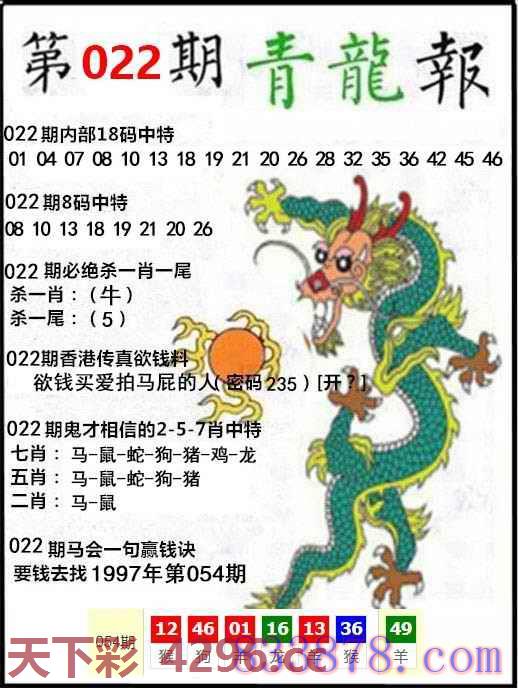 第022期青龍報
022期内部18码中特
01 04 07 08 10 13 18 19 21 20 26 28 32 35 36 42 45 46
022期8码中特
08 10 13 18 19 21 20 26
022期必绝杀一肖一尾
杀一肖：（牛）
杀一尾：（5）
022期香港传真欲钱料
欲钱买爱拍马屁的人（密码235）[开？]
022期鬼才相信的2-5-7肖中特
七肖：马-鼠-蛇-狗-猪-鸡-龙
五肖：马-鼠-蛇-狗-猪
二肖：马-鼠
022期马会一句赢钱诀
要钱去找1997年第054期
054期 12 46 01 16 13 36 49
猴 狗 羊 龙 羊 猴 羊
天下彩 4296.cc